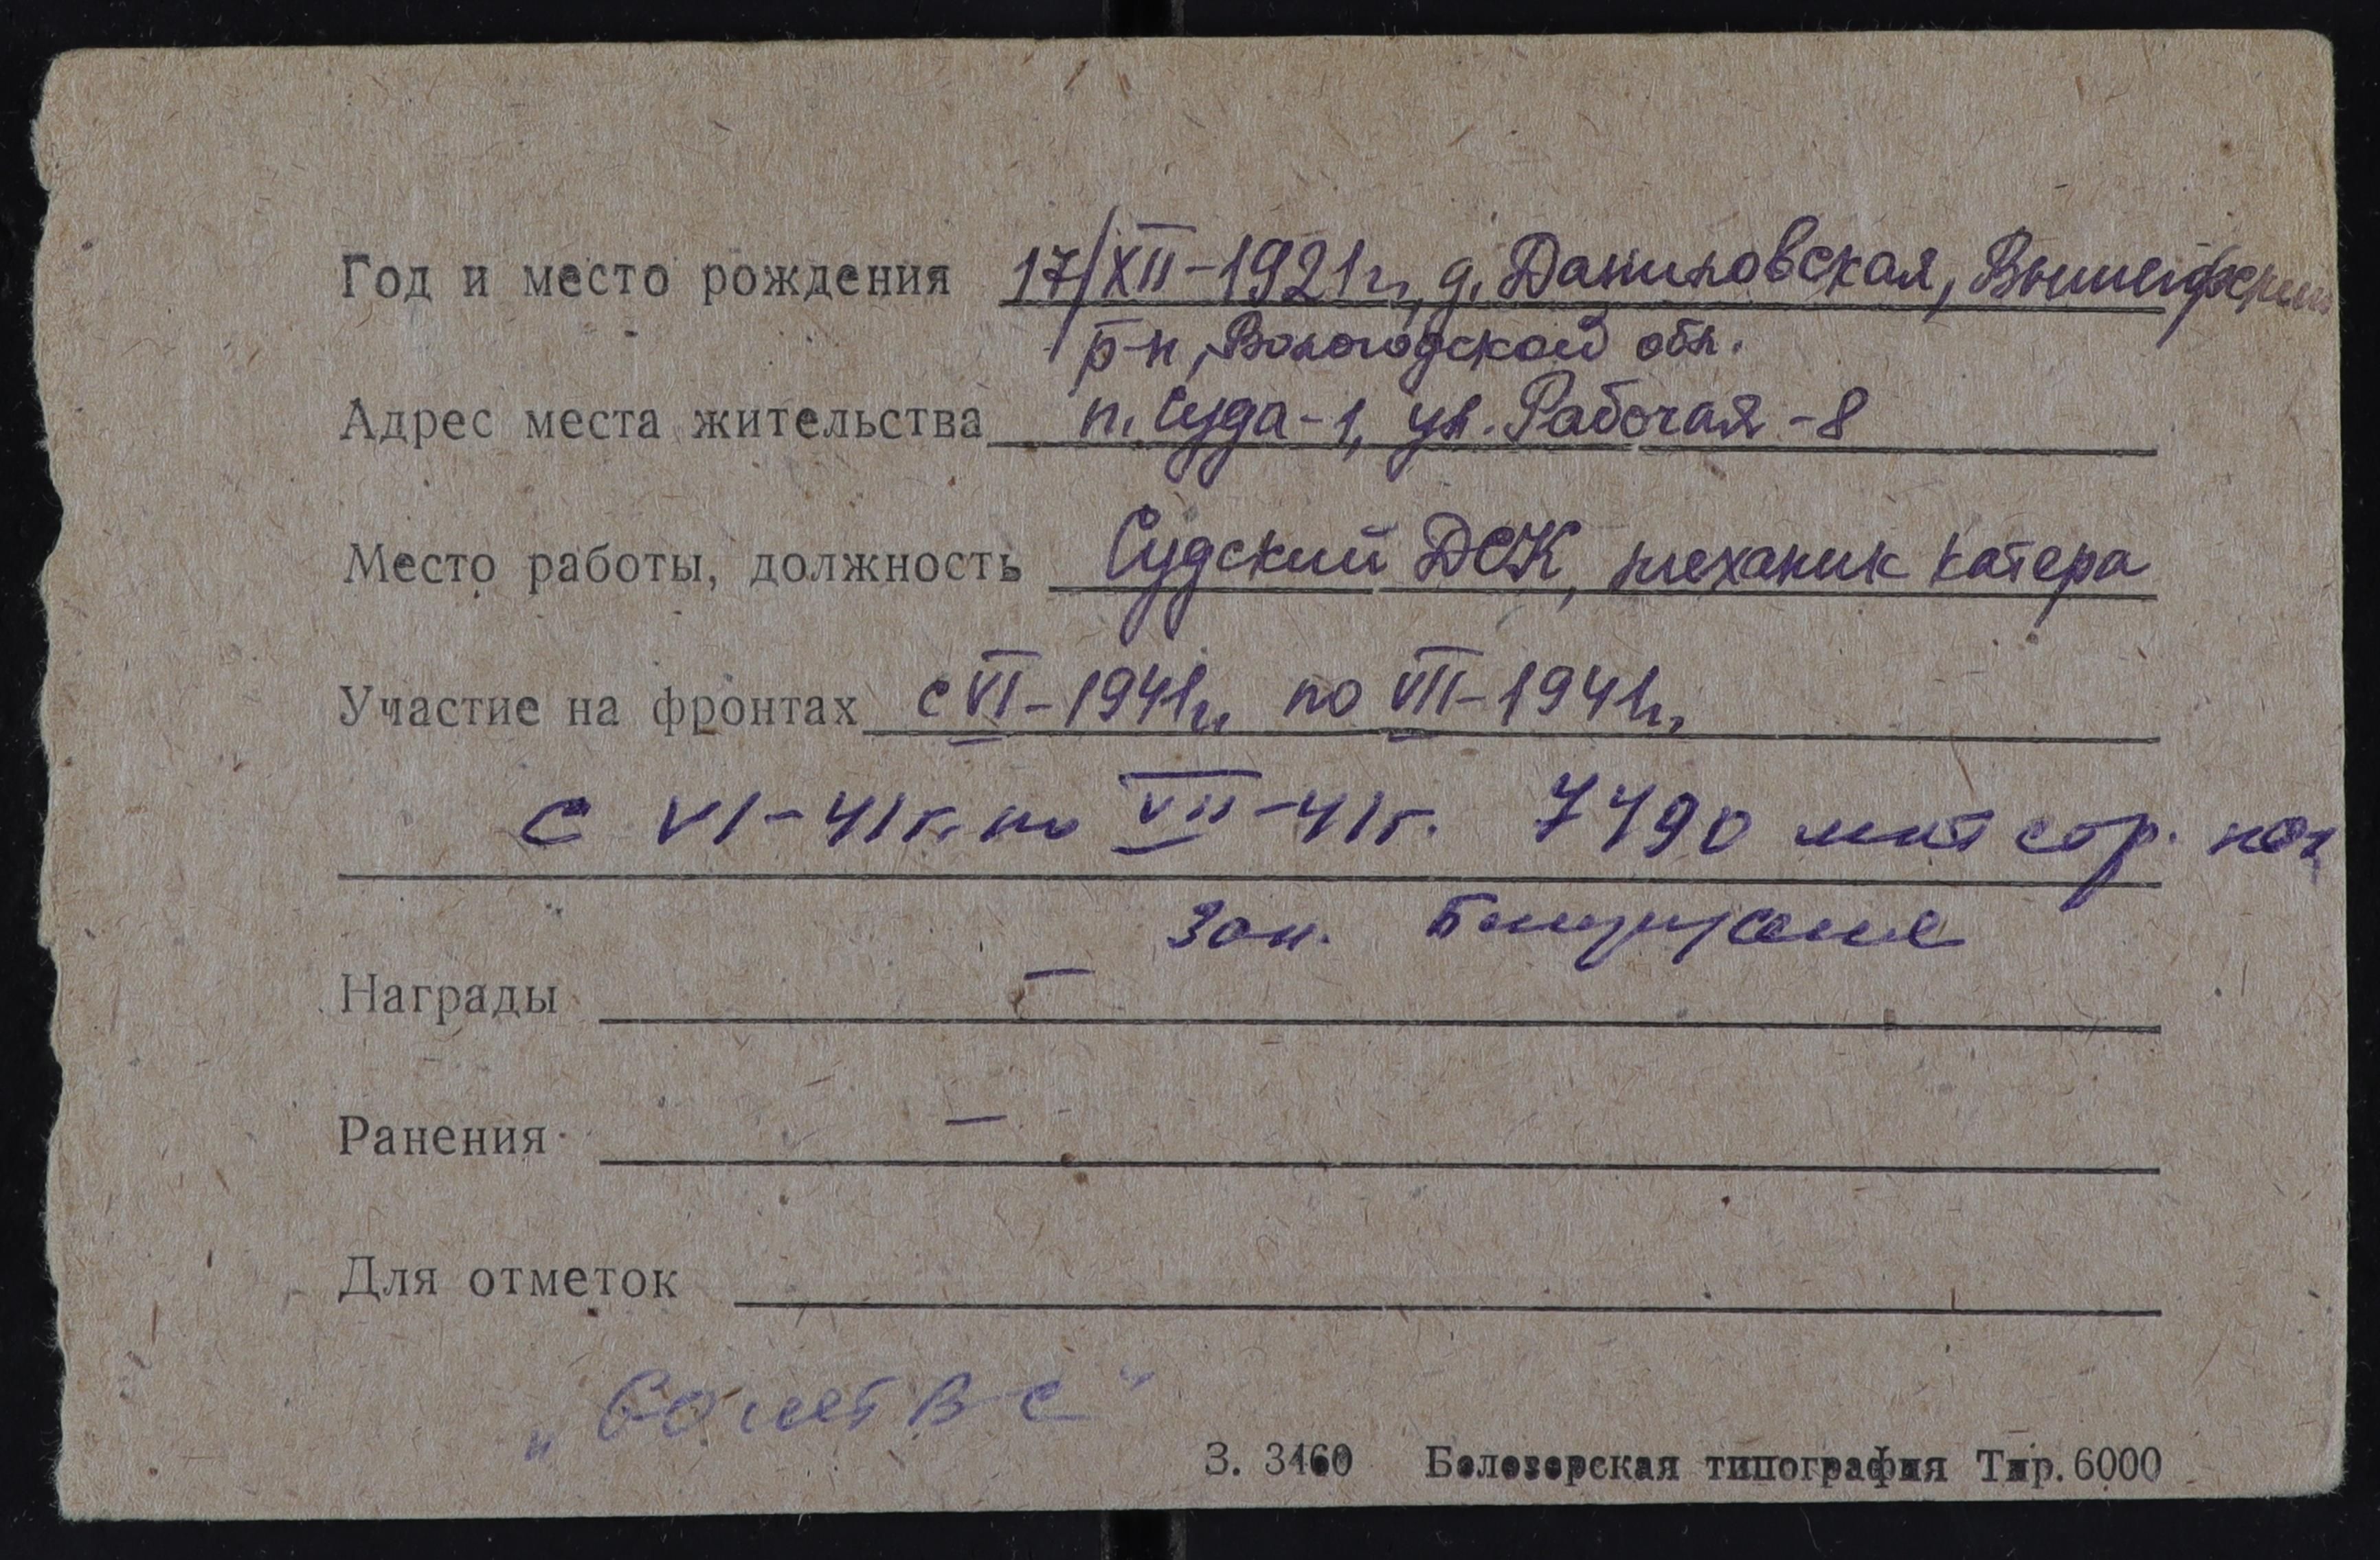 Год и место рождения 17/XII-1921г, д. Даниловская, Вышегорский
р-н, Вологодской обл.
Адрес места жительства п. Суда-1, ул. Рабочая-8
Место работы, должность Судский ДСК, механик катера
Участие на фронтах с VI-1941г. по VIII-1941г.
с VI-41г. по VII-41г. 7490 стр.
Зап.
Награды —
Ранения —
Для отметок
З. 3460 Белозерская типография Тир. 6000